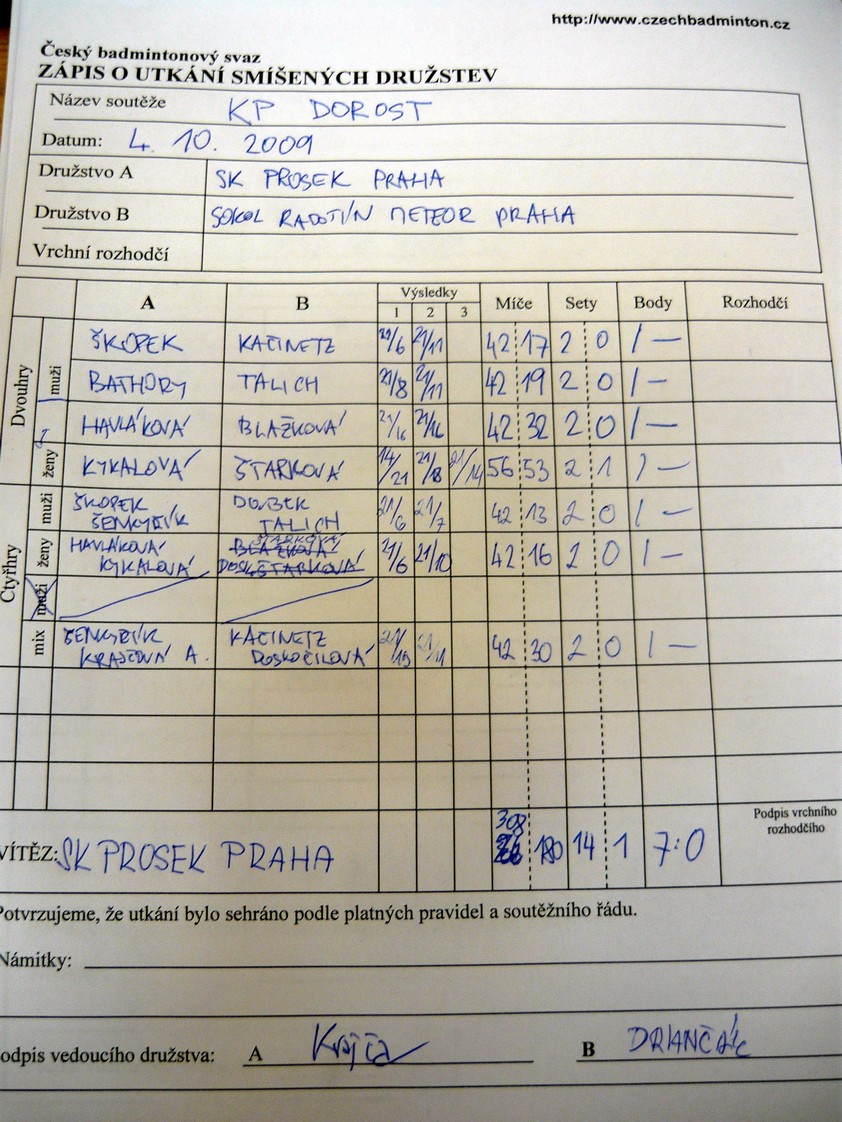 http://www.czechbadminton.cz
Český badmintonový svaz
ZÁPIS O UTKÁNÍ SMÍŠENÝCH DRUŽSTEV
Název soutěže KP DOROST
Datum: 4. 10. 2009
Družstvo A SK PROSEK PRAHA
Družstvo B SOKOL RADOTÍN METEOR PRAHA
Vrchní rozhodčí
A B Výsledky 1 2 3 Míče Sety Body Rozhodčí
Dvouhry
muži
ŠKOPEK KATINETZ 21/6 21/11 42 17 2 0 1 —
BATHORY TALICH 21/8 21/11 42 19 2 0 1 —
HAVLÁKOVÁ BLAŽKOVÁ 21/16 21/16 42 32 2 0 1 —
ženy
KYKALOVÁ ŠTARKOVÁ 14/21 21/18 21/14 56 53 2 1 1 —
Čtyřhry
muži
ŠKOPEK
ŠENKYŘÍK TALICH 21/6 21/7 42 13 2 0 1 —
ženy
HAVLÁKOVÁ
KYKALOVÁ ŠTARKOVÁ 21/6 21/10 42 16 2 0 1 —
muži
mix
ŠENKYŘÍK KATINETZ
A. DOSKOČILOVÁ 21/19 21/11 42 30 2 0 1 —
VÍTĚZ: SK PROSEK PRAHA 308 180 14 1 7:0
Podpis vrchního
rozhodčího
Potvrzujeme, že utkání bylo sehráno podle platných pravidel a soutěžního řádu.
Námitky:
odpis vedoucího družstva: A Krajča B DRIANČÁK